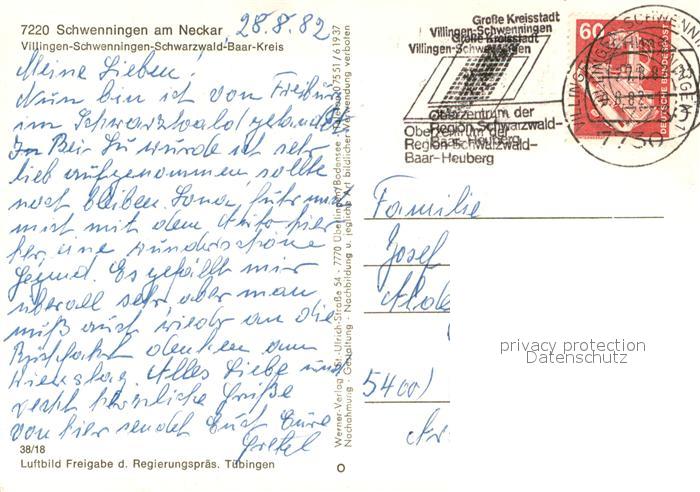 7220 Schwenningen am Neckar
28.8.82
Villingen-Schwenningen-Schwarzwald-Baar-Kreis
Meine Lieben!
Nun bin ich von Freiburg
im Schwarzwald gelandet.
In wurde ich sehr
lieb aufgenommen, sollte
noch bleiben. fuhr
mich mit dem Auto hier
her, eine wunderschöne
Gegend. Es gefällt mir
überall sehr, aber man
muß auch wieder an die
Rückfahrt denken am
Dienstag. Alles Liebe und
recht herzliche Grüße
von hier sendet Euch Eure
Gretel
38/18
Luftbild Freigabe d. Regierungspräs. Tübingen
Werner-Verlag St.-Ulrich-Straße 54 - 7770 Überlingen/Bodensee 07551/61937
Nachahmung - Gestaltung - Nachbildung u. jegliche Art bildlicher Verwendung verboten
Große Kreisstadt
Villingen-Schwenningen
Große Kreisstadt
Villingen-Schwenningen
Oberzentrum der
Region Schwarzwald-
Baar-Heuberg
Oberzentrum der
Region Schwarzwald-
Baar-Heuberg
60
DEUTSCHE BUNDESPOST
7730
Familie
Josef
5400
privacy protection
Datenschutz